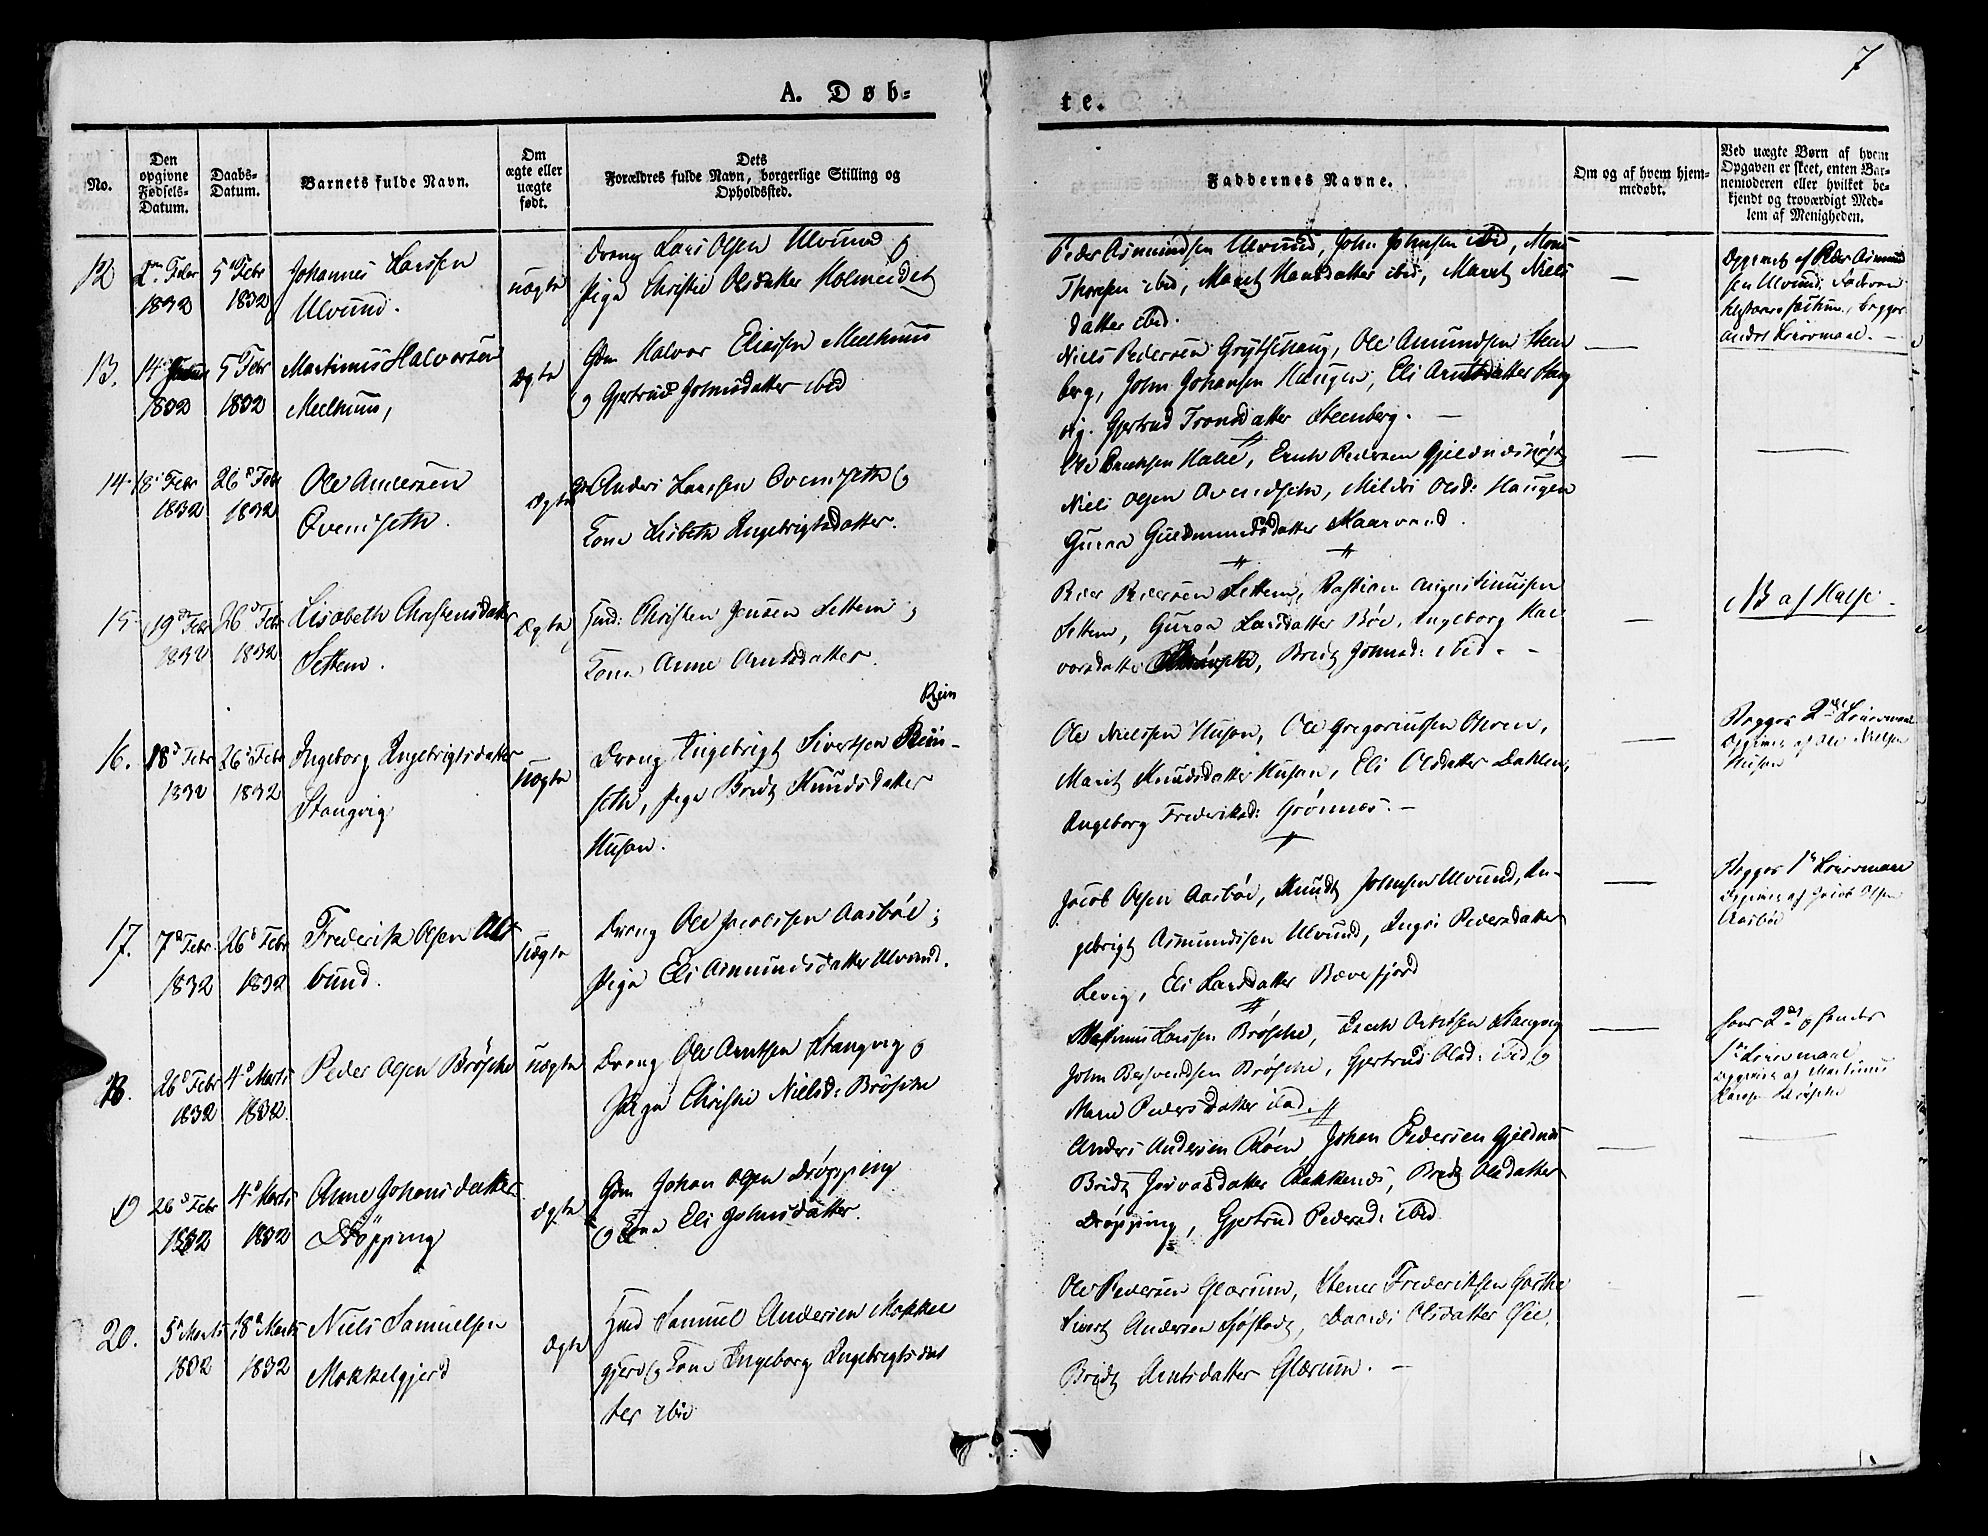 7
A. Døb-
te.
No.
Den opgivne Fødsels-Datum.
Daabs-Datum.
Barnets fulde Navn.
Om ægte eller uægte født.
Dets Forældres fulde Navn, borgerlige Stilling og Opholdssted.
Faddernes Navne.
Om og af hvem hjem-medøbt.
Ved uægte Børn af hvem Opgaven er skeet, enten Bar-nemoderen eller hvilket be-kjendt og troværdigt Med-lem af Menigheden.
12
Febr
1832
5 Febr
1832
Johannes Larssen
Ulvund.
uægte
Dreng Lars Olsen Ulvund og
Pige Christie Olsdatter Holmeidet
Peder Asmundsen Ulvund, John Johnsen ibid,
Thoresen ibid, Marit Hansdatter ibid, Marit Niels
datter ibid.
Opgivet af Peder Asmund
sen Ulvund
13.
14
1832
5 Febr
1832
Martinus Halvorsen
Meelhuus,
ægte
Gdm Halvor Eliassen Meelhuus
og Gjertrud Johnsdatter ibid
Niels Pedersen Grytskaug, Ole Amundsen Steen
berg, John Johansen Haugen, Eli Arntsdatter Stang
vig. Gjertrud Tronsdatter Steenberg.
14
18 Febr
1832
26 Febr
1832
Ole Andersen
Qvenseth.
ægte
Anders Larssen Qvenseth og
Kone Lisbeth Ingebrigtsdatter.
Ole Erichsen Halle, Erich Pedersen Gjeldnes
Niels Olsen Qvendseth, Mildri Olsd: Haugen
Guraa Guldmundsdatter Maarvand.
15
19 Febr
1832
26 Febr
1832
Lisabeth Christensdatter
Settem.
ægte
Christen Jensen Settem og
Kone Anne Arntsdatter.
Peder Pedersen Settem, Bastian Augustinussen
Settem, Guraa Larsdatter Bøe, Ingeborg Hal
vorsdatter, Bredt Johnsd: ibid.
NB af Halse
16.
18 Febr
1832
26 Febr
1832
Ingeborg Ingebrigtsdatter
Stangvig
Uægte
Rein
Dreng Ingebrigt Sivertsen
seth, Pige Bredt Knudsdatter
Husan.
Ole Nielssen Husan, Ole Gregoriussen Ohren,
Marit Knudsdatter Husan, Eli Olsdatter Dahlen,
Ingeborg Frederiksd: Grønnæs.
Begges 2det Leiermaal
Opgivet af Ole Nielsen
Husan
17.
7 Febr
1832
26 Febr
1832
Frederik Olsen Ul
bund.
Uægte
Dreng Ole Jacobsen Aasbøe;
Pige Eli Asmundsdatter Ulvund.
Jacob Olsen Aasbøe, Knudt Johnsen Ulvund, In-
gebrigt Asmundsen Ulvund, Pedersdatter
Levig, Eli Larsdatter Bæverfjord
Begges 1te Leiermaal
Opgivet af Jacob Olsen
Aasbøe
18.
26 Febr
1832
4 Marts
1832.
Peder Olsen Brøsche
uægte
Dreng Ole Arntsen Stangvig og
Pige Christie Nielsd: Brøsche
Mastinus Larssen Brøsche, Erich Arntsen Stangvig
John Bersvendsen Brøsche, Gjertrud Olsd: ibid og
Marie Pedersdatter ibid.
hans 2det og hendes
1te Leiermaal
Opgivet af Martinus
Larsen Brøsche
19
26 Febr
1832
4 Marts
1832
Anne Johansdatter
Drøpping
ægte
Gdm Johan Olsen Drøpping
og Kone Eli Johnsdatter.
Anders Andersen Røen, Johan Pedersen Gjeldnes
Bridt Iversdatter Bakkenes, Bridt Olsdatter
Drøpping, Gjertrud Pedersd: ibid
20.
5 Marts
1832
18 Marts
1832
Niels Samuelsen
Mokkelgjerd
ægte
Huusmd Samuel Andersen Mokkel
gjerd og Kone Ingeborg Ingebrigtsdat
ter ibid
Ole Pedersen Glærum, Stener Frederiksen
Sivert Andersen Sjøflodt, Olsdatter
Bridt Arntsdatter Glærum.